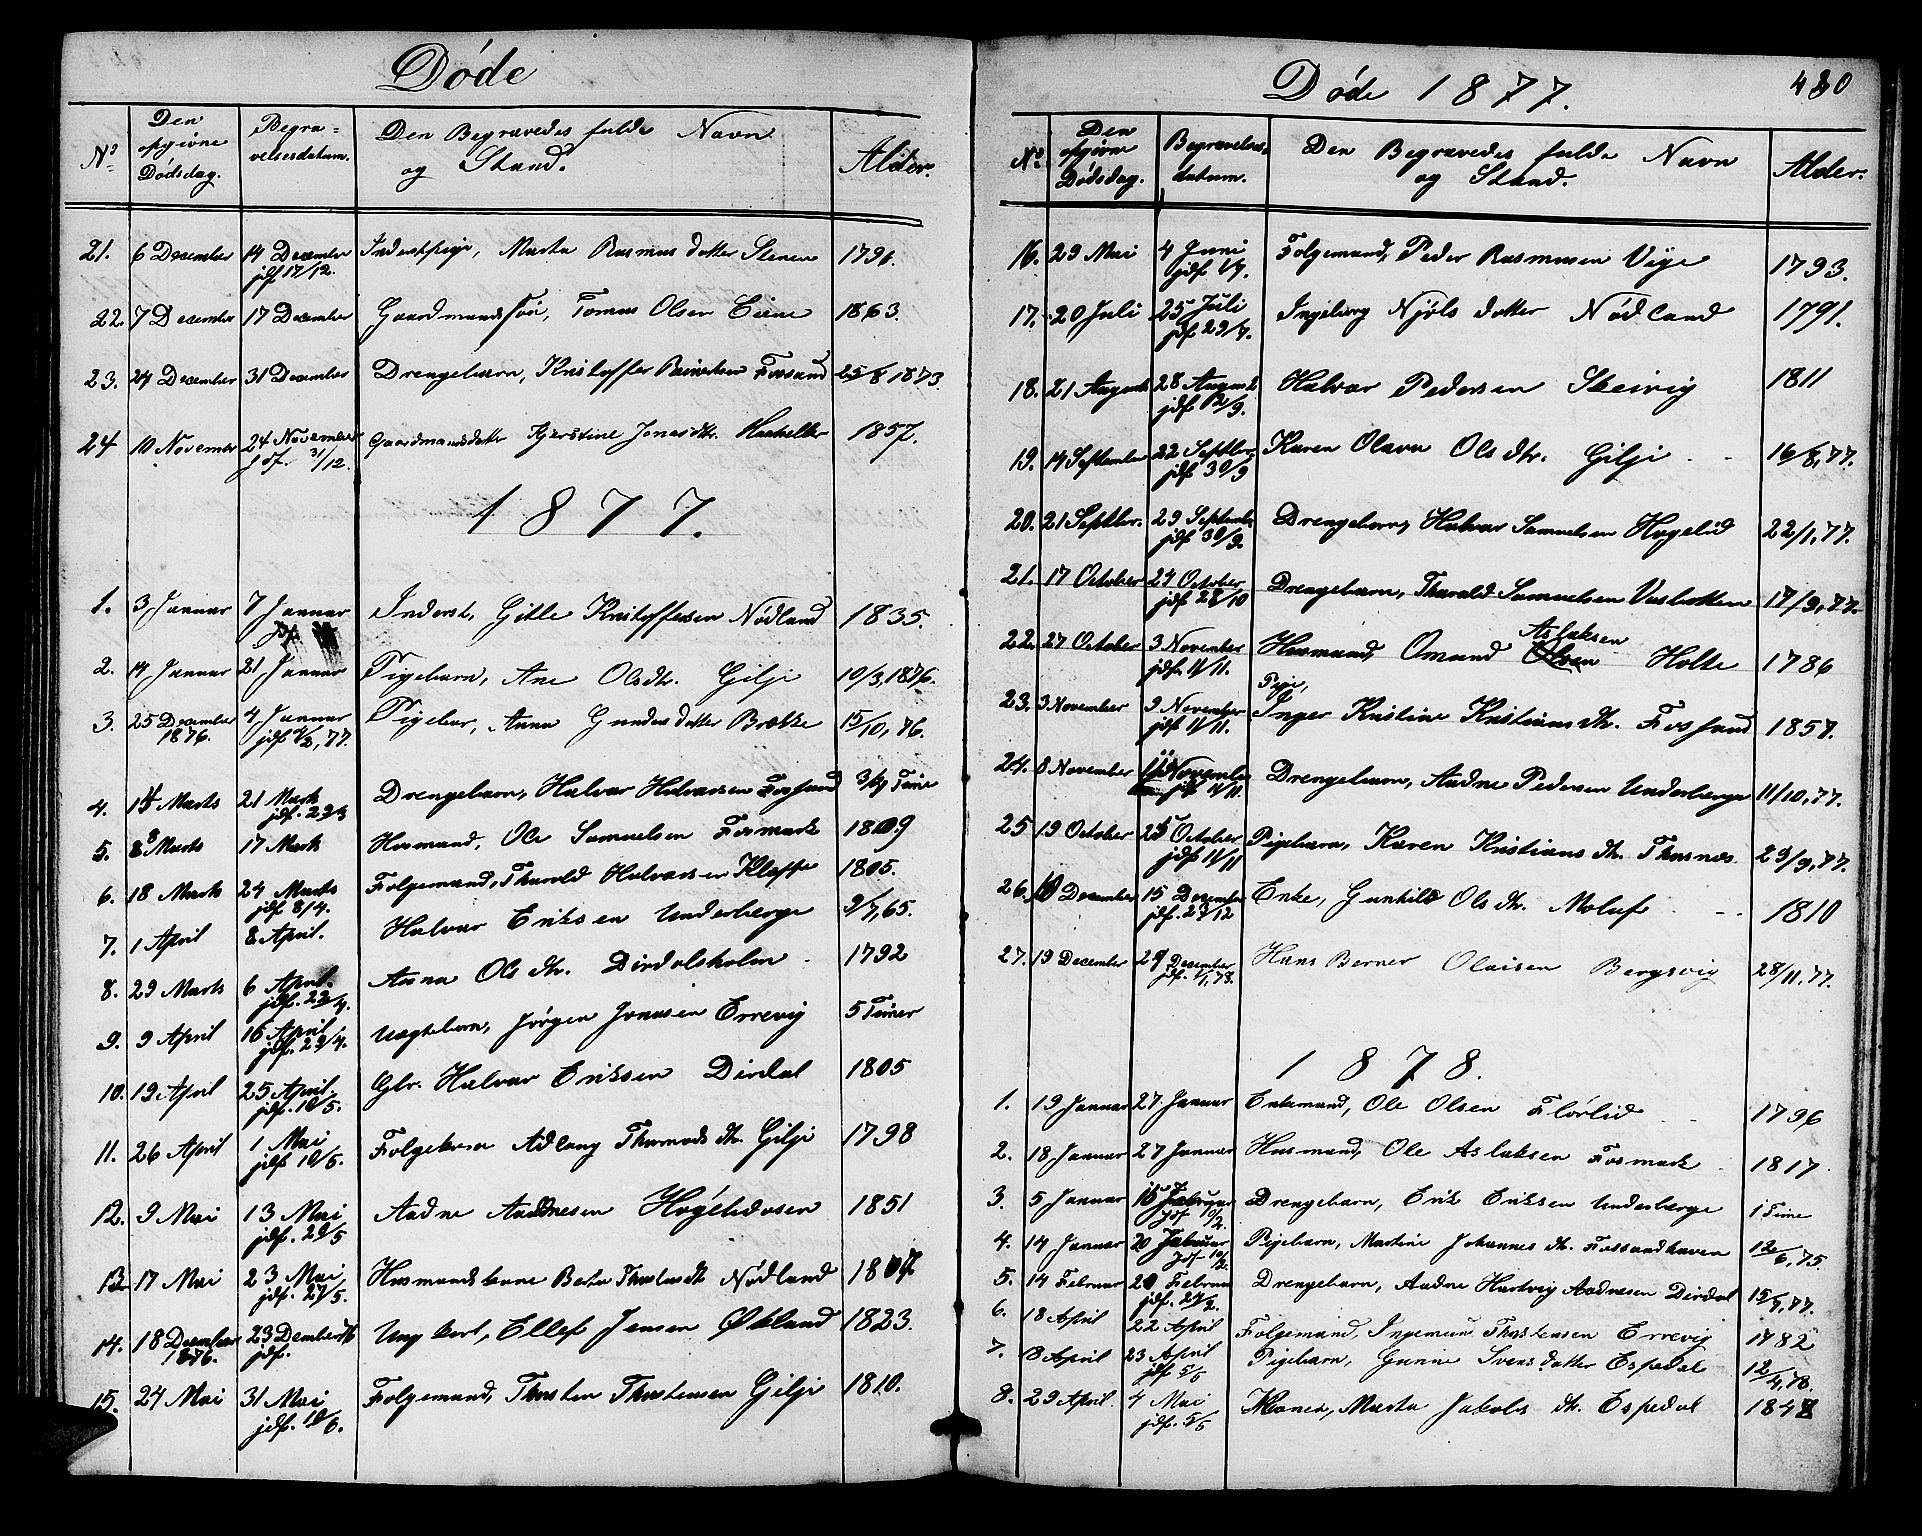 Døde
No.
Den opgivne Dødsdag.
Begravelsesdatum.
Den Begravedes fulde Navn og Stand.
Alder.
21. 6 December 14 December jdf 17/12. Marta Rasmusdatter Stenen 1791.
22. 7 December 17 December Gaardmandssøn, Tomas Olsen Eiene 1863.
23. 24 December 31 December Drengebarn, Kristoffer Fossand 25/8 1873.
24 10 November 24 November jdf. 31/12. Gaardmandsdatter Kjerstine Jonasdtr. 1857.
1877.
1. 3 Januar 7 Januar Inderst, Gitle Kristoffersen Nødland 1835.
2. 14 Januar 21 Januar Pigebarn, Ane Olsdtr. Gilje 10/3, 1876.
3. 25 December 1876. 4 Januar Pigebar, Anna Gundersdatter Brekke 15/10, 76.
4. 14 Marts 21 Marts jdf. 22/3 Drengebarn, Halvar Halvarsen Fossand 3/4 Time
5. 8 Marts 17 Marts Husmand, Ole Samuelsen Fosmark 1809
6. 18 Marts 24 Marts jdf 8/4. Folgemand, Tharald Halvarsen Kleppe 1805.
7. 1 April 8 April. Halvar Eriksen Underberge 9/7, 65.
8. 29 Marts 6 April. jdf. 29/4. Anna Olsdtr. Dirdalsholm 1792
9. 9 April 16 April jdf. 29/4. Uægtebarn, Jørgen Jonasen Errevig 5 Timer
10. 19 April 25 April. jdf. 10/5. Gbr. Halvar Eriksen Dirdal 1805
11. 26 April 1 Mai jdf 10/5. Folgekone Adlaug Thormodsdtr. Gilje 1798
12. 9 Mai 13 Mai jdf. 20/5 Aadne Aadnesen Høgelidsosen 1851
13. 17 Mai 23 Mai jdf. 27/5. Husmandskone Berta Nødland 1807.
14. 18 December 1876. 23 Dember 76 jdf. Ungkerl, Ellef Jensen Økland 1823.
15. 24 Mai 31 Mai jdf. 10/6. Folgemand, Thorsten Thorstensen Gilje 1810.
Døde 1877.
480
No.
Den opgivne Dødsdag.
Begravelsesdatum.
Den Begravedes fulde Navn og Stand.
Alder.
16. 29 Mai 4 Juni jdf 1/7. Folgemand, Peder Rasmusen Veje 1793.
17. 20 Juli 25 Juli jdf 29/7. Ingeborg Njølsdatter Nødland 1791.
18. 21 August 28 August jdf 12/9. Halvar Pedersen Skeivig 1811
19. 14 September 22 Septbr. jdf 30/9 Karen Olava Olsdtr. Gilje 16/8, 77.
20. 21 Septbr. 29 September jdf 30/9. Drengebarn, Halvar Samuelsen Høgelid 22/1, 77.
21. 17 October 24 October jdf 28/10 Drengebarn, Tharald Samuelsen Vasbotten 17/9, 77.
22. 27 October 3 November jdf. 11/11. Husmand, Omund Olsen Aslaksen Holte 1786
23. 3 November 9 November jdf 11/11. Pige, Inger Kristine Kristiansdtr. Fossand 1857.
24. 8 November 11 November jdf 11/11. Drengebarn, Aadne Pedersen Underberge 11/10, 77.
25 19 October 25 October jdf 11/11 Pigebarn, Karen Kristiansdtr. Thorsnes 29/9, 77.
26. 10 December 15 December jdf. 23/12 Enke, Gunhild Olsdtr. Moluf 1810
27. 19 December 29 Desember jdf. 1/1, 78. Hans Berner Olaisen Bergsvig 28/11, 77.
1878.
1. 19 Januar 27 Januar Enkemand, Ole Olsen Flørlid 1796
2. 18 Januar 27 Januar Husmand, Ole Aslaksen Fosmark 1817.
3. 5 Januar 15 Jdf 10/2. Drengebarn, Erik Eriksen Underberge 1 Time
4. 14 Januar 20 Jdf 10/2. Pigebarn, Martine Johannesdtr. Fossandhaven 12/6, 75.
5. 14 Februar 20 Februar jdf. 24/2. Drengebarn, Aadne Hartvig Aadnesen Dirdal 15/7, 77.
6. 18 April 22 April Folgemand, Ingemund Thorstensen Errevig 1782
7. 18 April 23 April jdf 5/5 Pigebarn, Gunne Svensdatter Espedal 12/4, 78.
8. 29 April. 4 Mai jdf. 5/5 Kone, Marta Jakobsdtr. Espedal 1848